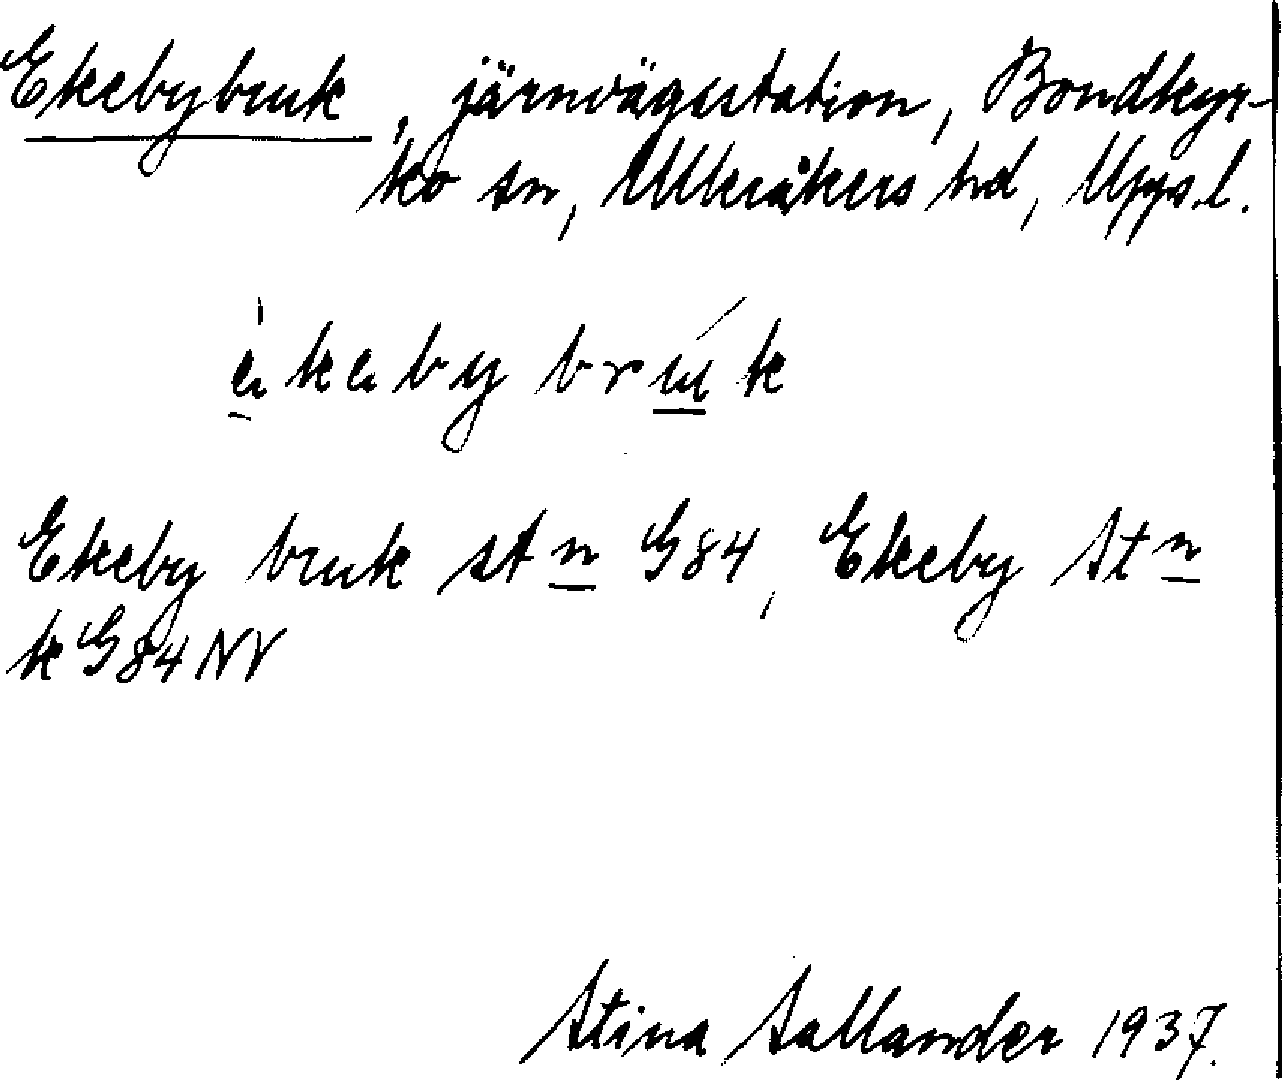 Ekebybruk, järnvägsstation, Bondkyr-
ko sn, Ulleråkers hd, Upps.l.
èkeby brúk
Ekeby bruk stn G84, Ekeby Stn
k G84NV
Stina Sallander 1937.